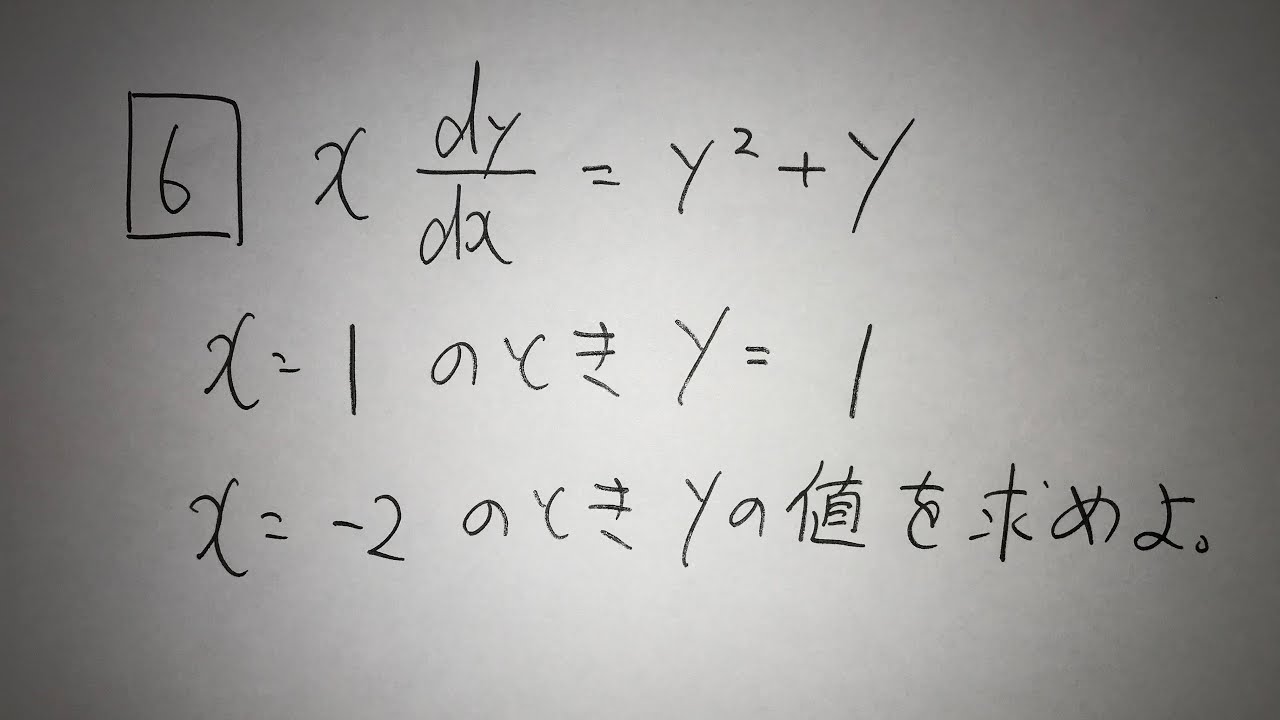 6 x dy/dx = y² + y
x = 1 のとき y = 1
x = -2 のとき yの値を求めよ。